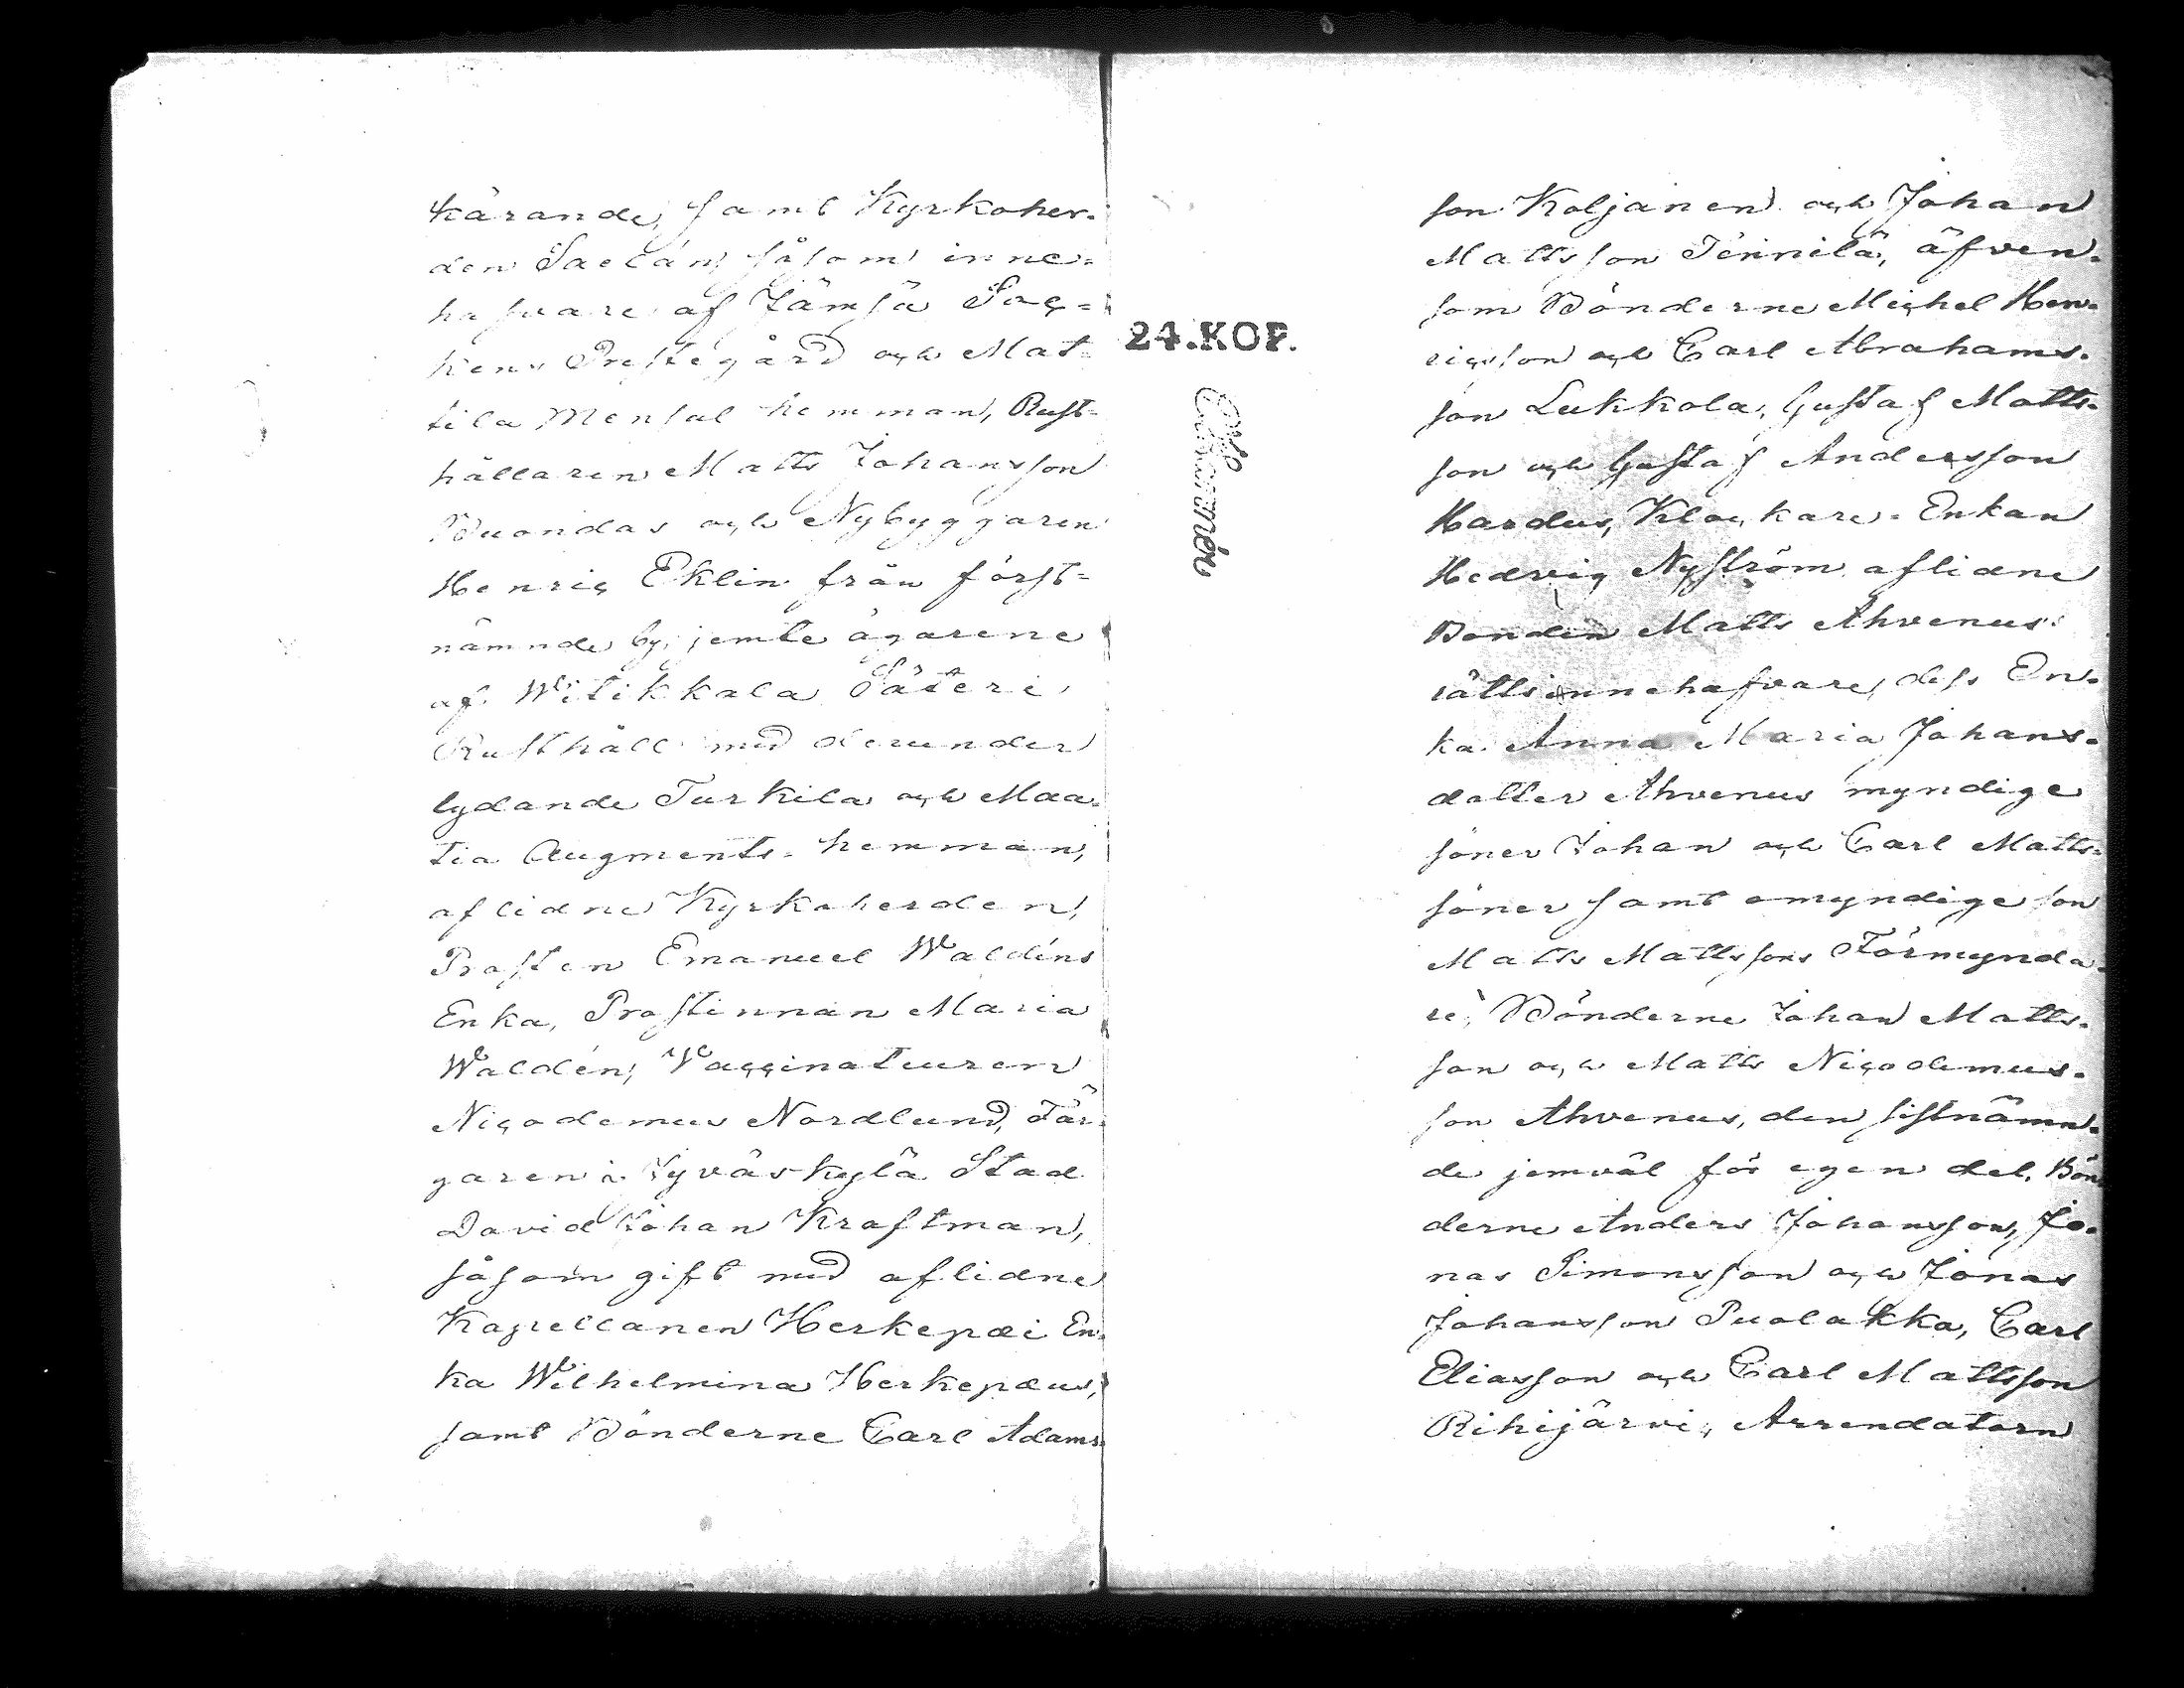 kärande, samt Kyrkoher-
den Saelan, såsom inne-
hafvare af Jämsä Soc-
kens Prestegård och Mat-
tila Mensal hemman, Rust-
hållaren Matts Johansson
Wuondas och Nybyggaren
Henric Eklin från först-
nämnde by, jemte ägarene
af Witikkala Säteri
Rusthåll med derunder
lydande Turkila och Maa-
tia Augments-hemman,
aflidne Kyrkoherden,
Prosten Emanuel Waldéns
Enka, Prostinnan Maria
Waldén, Vaccinateuren
Nicodemus Nordlund, Fär-
garen i Jyväskylä Stad
David Johan Kraftman,
såsom gift med aflidne
Kapellanen Herkepæi En-
ka Wilhelmina Herkepæus,
samt Bönderne Carl Adams-
24.KOP.
son Koljanen och Johan
Mattsson Tennilä, äfven-
som Bönderne Michel Hen-
ricsson och Carl Abrahams-
son Lukkola, Gustaf Matts-
son och Gustaf Andersson
Hardus, Klockare-Enkan
Hedvig Nyström aflidne
Bonden Matts Ahvenus
rättsinnehafvare, dess En-
ka Anna Maria Johans-
dotter Ahvenus myndige
söner Johan och Carl Matts-
söner samt omyndige son
Matts Mattssons Förmynda-
re, Bönderne Johan Matts-
son och Matts Nicodemus-
son Ahvenus, den sistnämn-
de jemväl för egen del, Bön-
derne Anders Johansson, Jo-
nas Simonsson och Jonas
Johansson Puolakka, Carl
Eliasson och Carl Mattsson
Rihijärvi, Arrendatorn